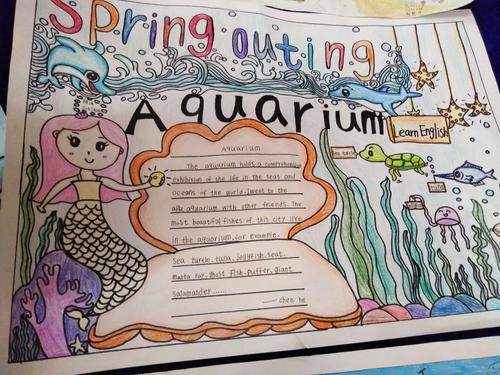 Spring outing
Aquarium
Learn English
Aquarium
The aquarium holds a comprehensive
exhibition of the life in the seas and
oceans of the world. I went to the
aquarium with other friends. The
most beautiful fishes of this city live
in the aquarium, for example.
Sea turtle, tuna, jellyfish, seat,
Manta ray, Ghost Fish, Puffer, giant
Salamander ......
—— chen he
sea turtle
tuna